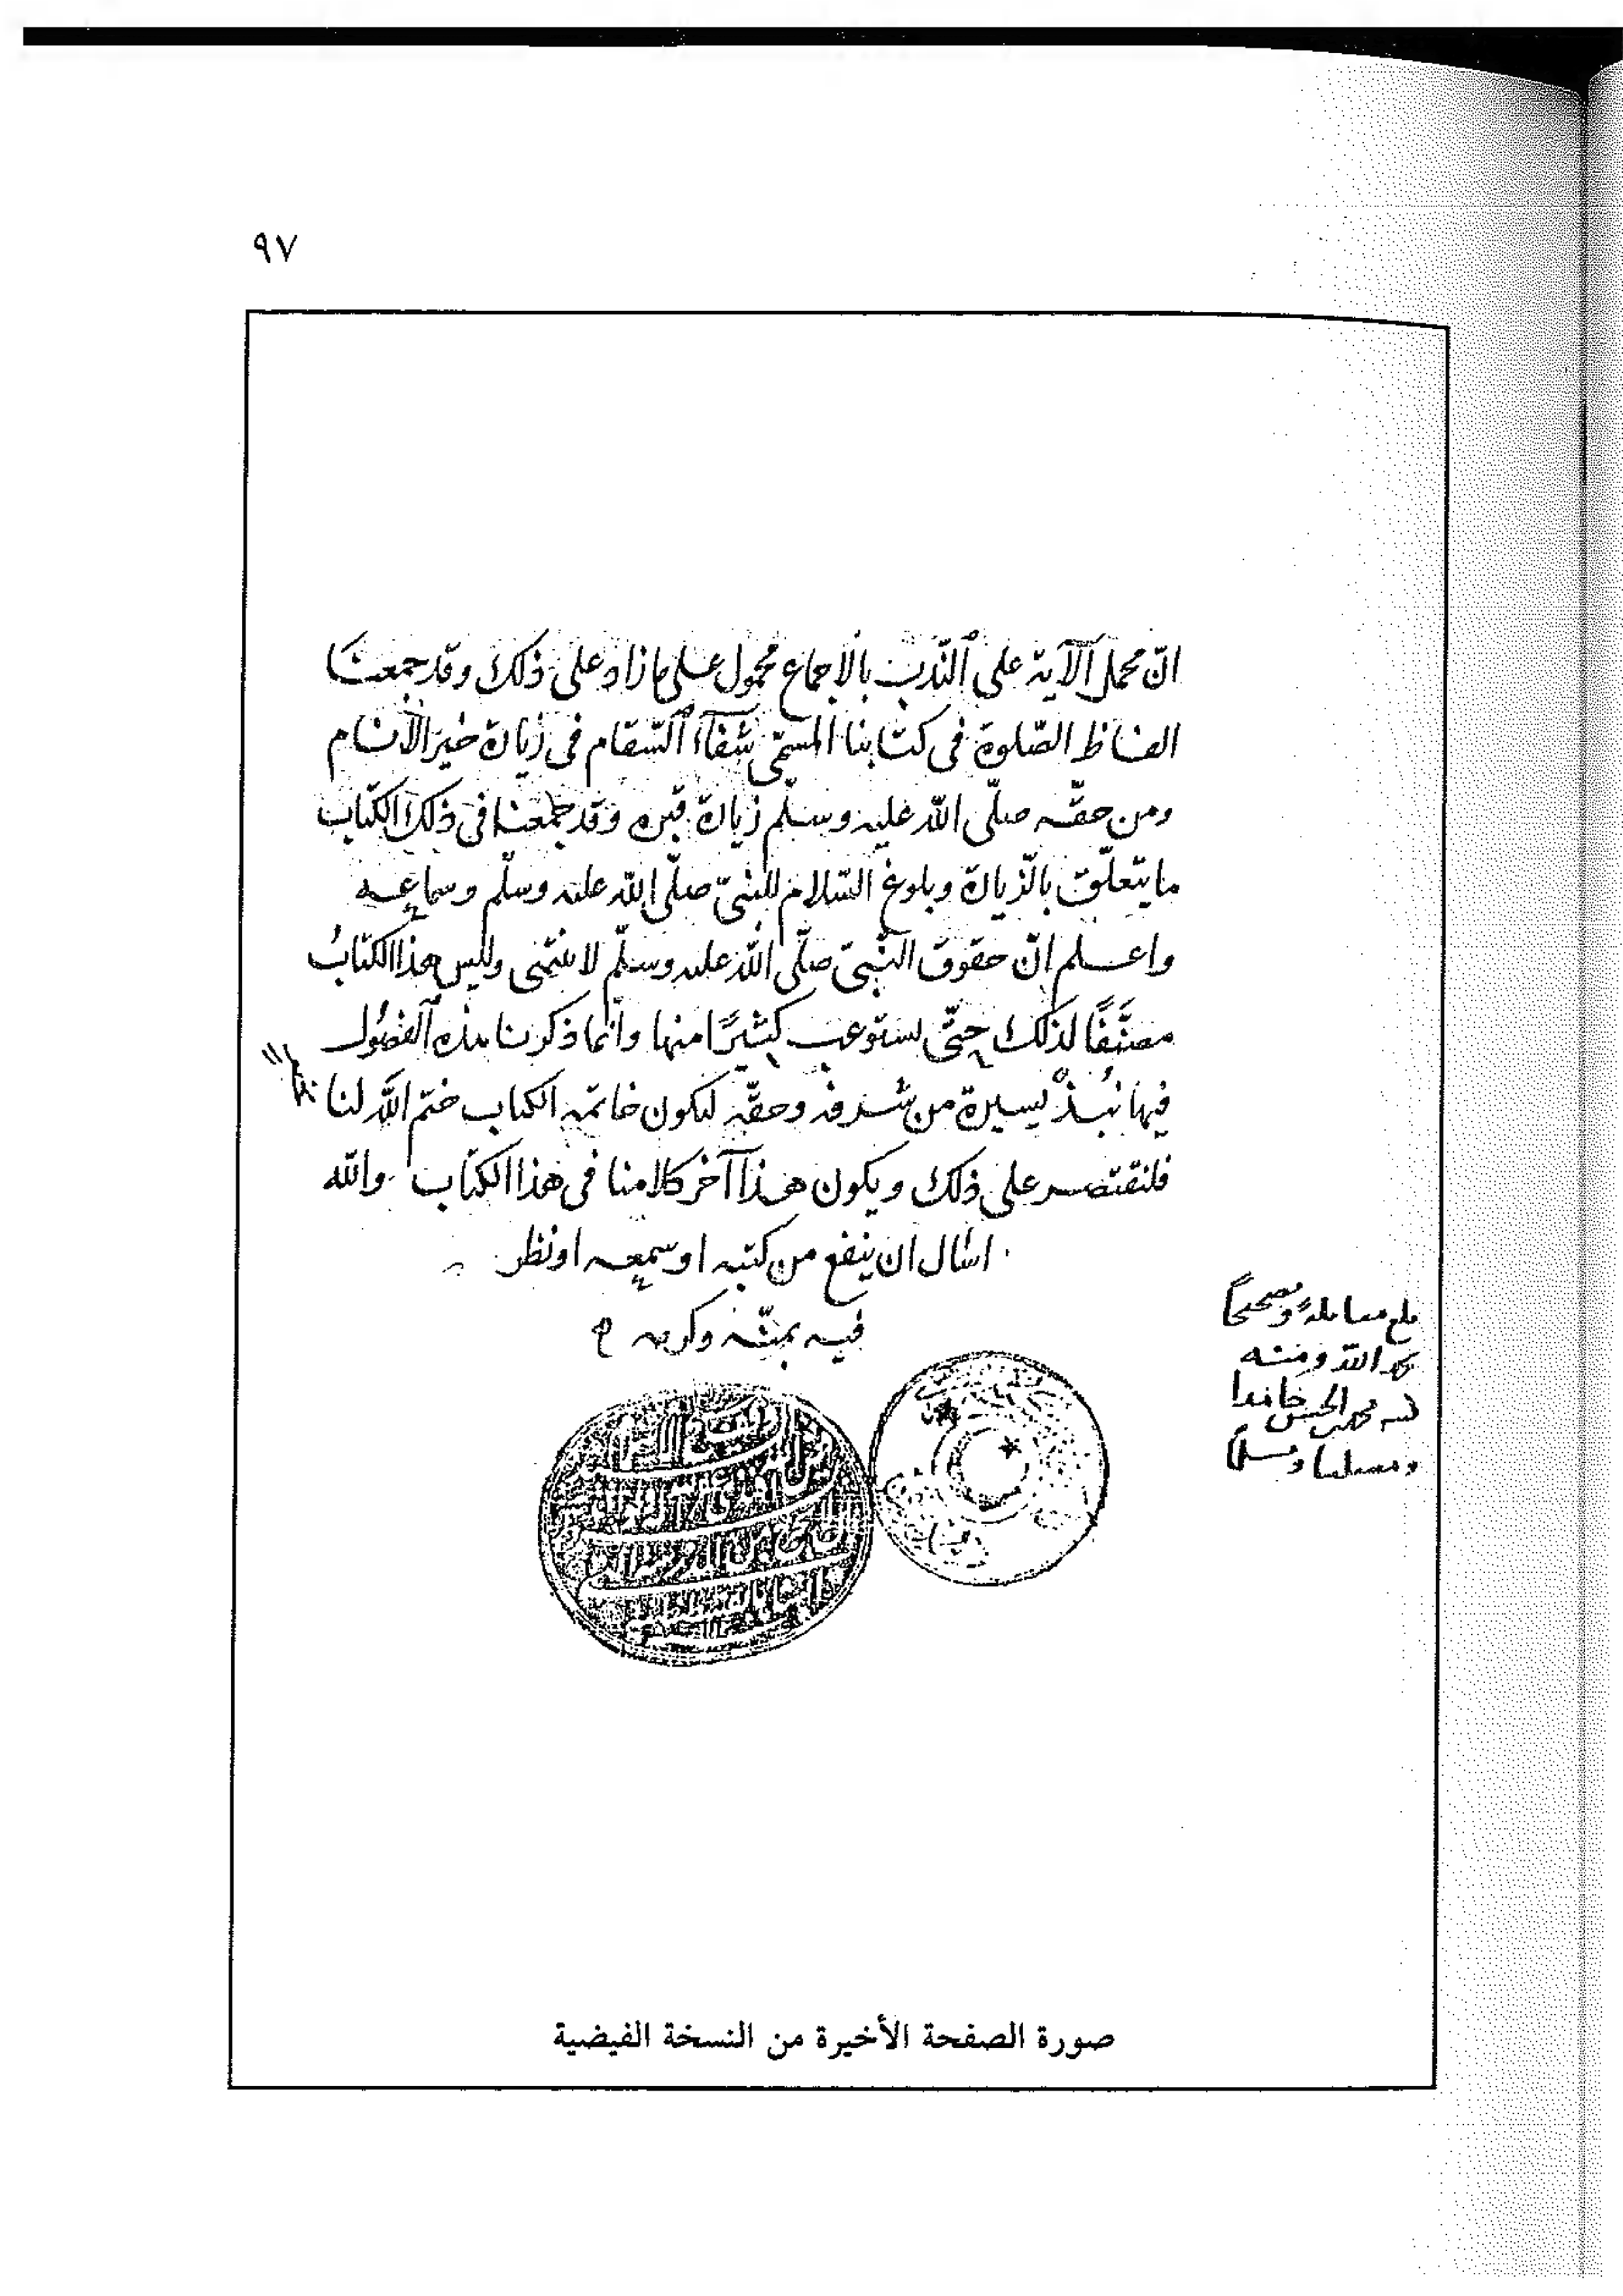 ٩٧
انّ محمل الآية على الندب بالاجماع محمول على ما زاد على ذلك وقد جمعنا
الفاظ الصّلوة فى كتابنا المسمّى شفآء السّقام فى زيارة خير الانام
ومن حقّه صلّى الله عليه وسلّم زيارة قبره وقد جمعنا فى ذلك الكتاب
ما يتعلّق بالزّيارة وبلوغ السّلام للنبىّ صلّى الله عليه وسلّم وسماعه
واعلم انّ حقوق النّبىّ صلّى الله عليه وسلّم لا تنتهى وليس هذا الكتابُ
مصنَّفًا لذلك حتّى نستوعب كثيرًا منها وانّما ذكرنا هذه الفصُول
فيها نُبذٌ يسيرة من شرفه وحقّه لتكون خاتمه الكتاب ختم الله لنا
فلنقتصر على ذلك ويكون هذا آخر كلامنا فى هذا الكتاب والله
اسٔال ان ينفع من كتبه او سمعه او نظر
فيه بمنّه وكرمه
بلغ مقابلةً وتصحيحاً
بحمد الله ومنه
حامدا
ومصليا ومسلماً
صورة الصفحة الأخيرة من النسخة الفيضية